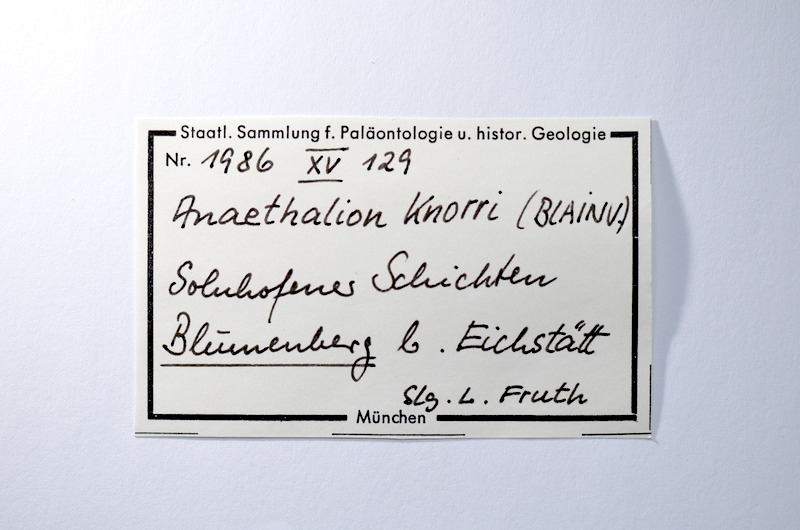 Staatl. Sammlung f. Paläontologie u. histor. Geologie
Nr. 1986 XV 129
Anaethalion Knorri (BLAINV.)
Solnhofener Schichten
Blumenberg b. Eichstätt
Slg. L. Fruth
München